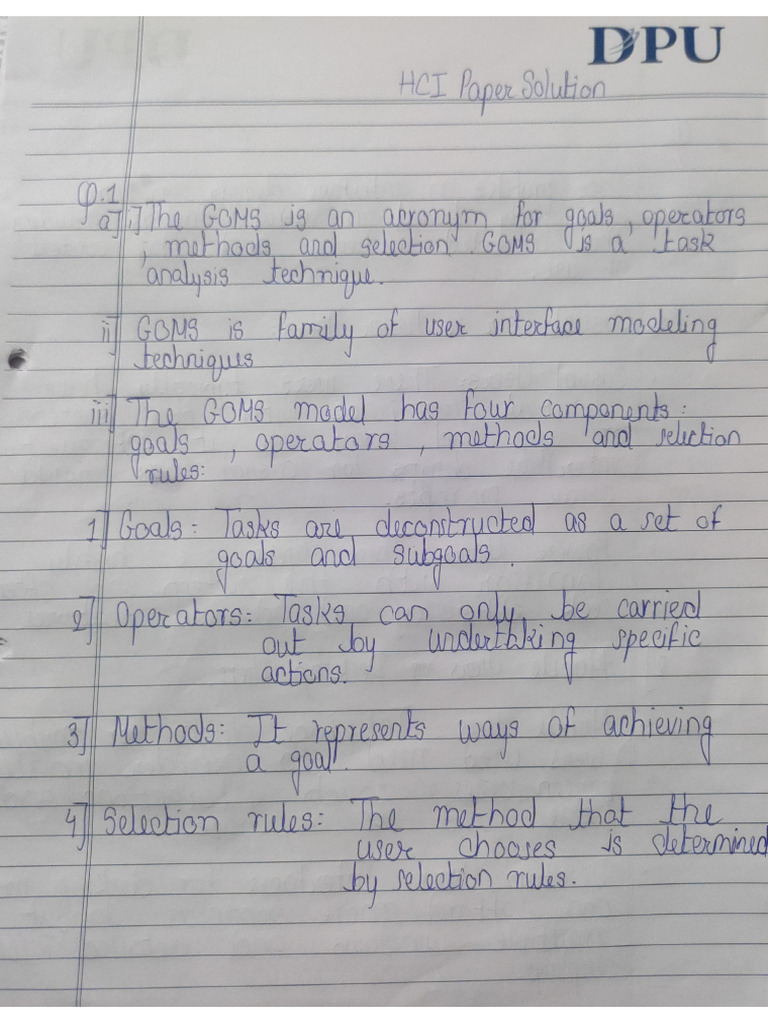 DPU
HCI Paper Solution
Q.1
a] i] The GOMS is an acronym for goals, operators
, methods and selection. GOMS is a task
analysis technique.
ii] GOMS is family of user interface modeling
techniques
iii] The GOMS model has four components:
goals, operators, methods and selection
rules:
1] Goals: Tasks are deconstructed as a set of
goals and subgoals.
2] Operators: Tasks can only be carried
out by underthking specific
actions.
3] Methods: It represents ways of achieving
a goal.
4] Selection rules: The method that the
user chooses is determined
by selection rules.